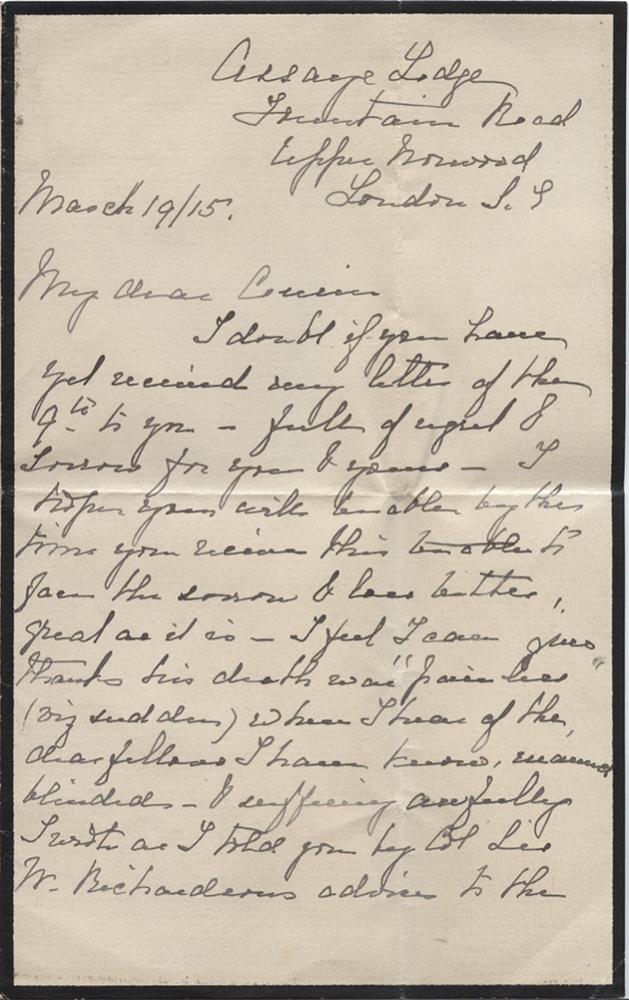 Assaye Lodge
Fountain Road
Upper Norwood
London S. E
March 19/15.
My dear Cousin
I doubt if you have
yet received my letter of the
9th to you - full of regret &
sorrow for you & yours - I
hope you will be able by the
time you receive this be able to
face the sorrow & loss better,
great as it is - I feel I can "give
thanks" his death was "painless"
(viz sudden) when I hear of the
dear fellows I have known, maimed
blinded - & suffering awfully
I wrote as I told you by Col Sir
W. Richardsons advice to the